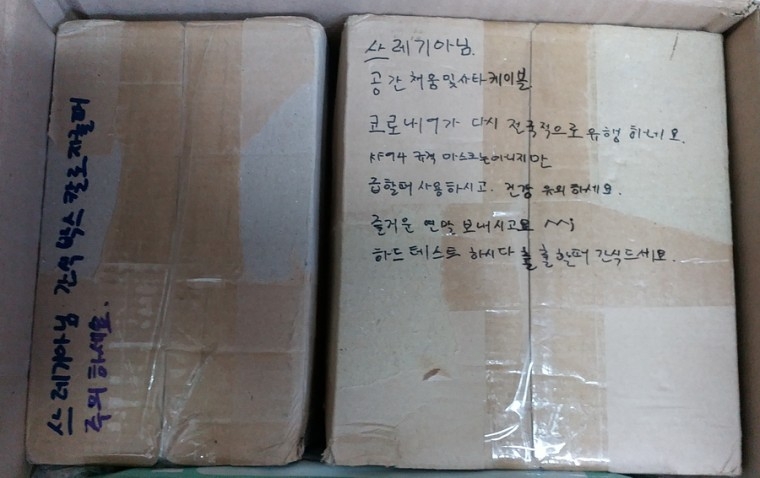 스레기아님 간식 박스 칼로 자를때
주의 하세요.
스레기아님.
공간채움및사타케이블
코로나19가 다시 전국적으로 유행 하네요.
KF94 규격 마스크는아니지만
급할때 사용하시고. 건강 유의하세요.
즐거운 연말 보내시고요 ^^;
하드테스트 하시다 출출할때 간식드세요.